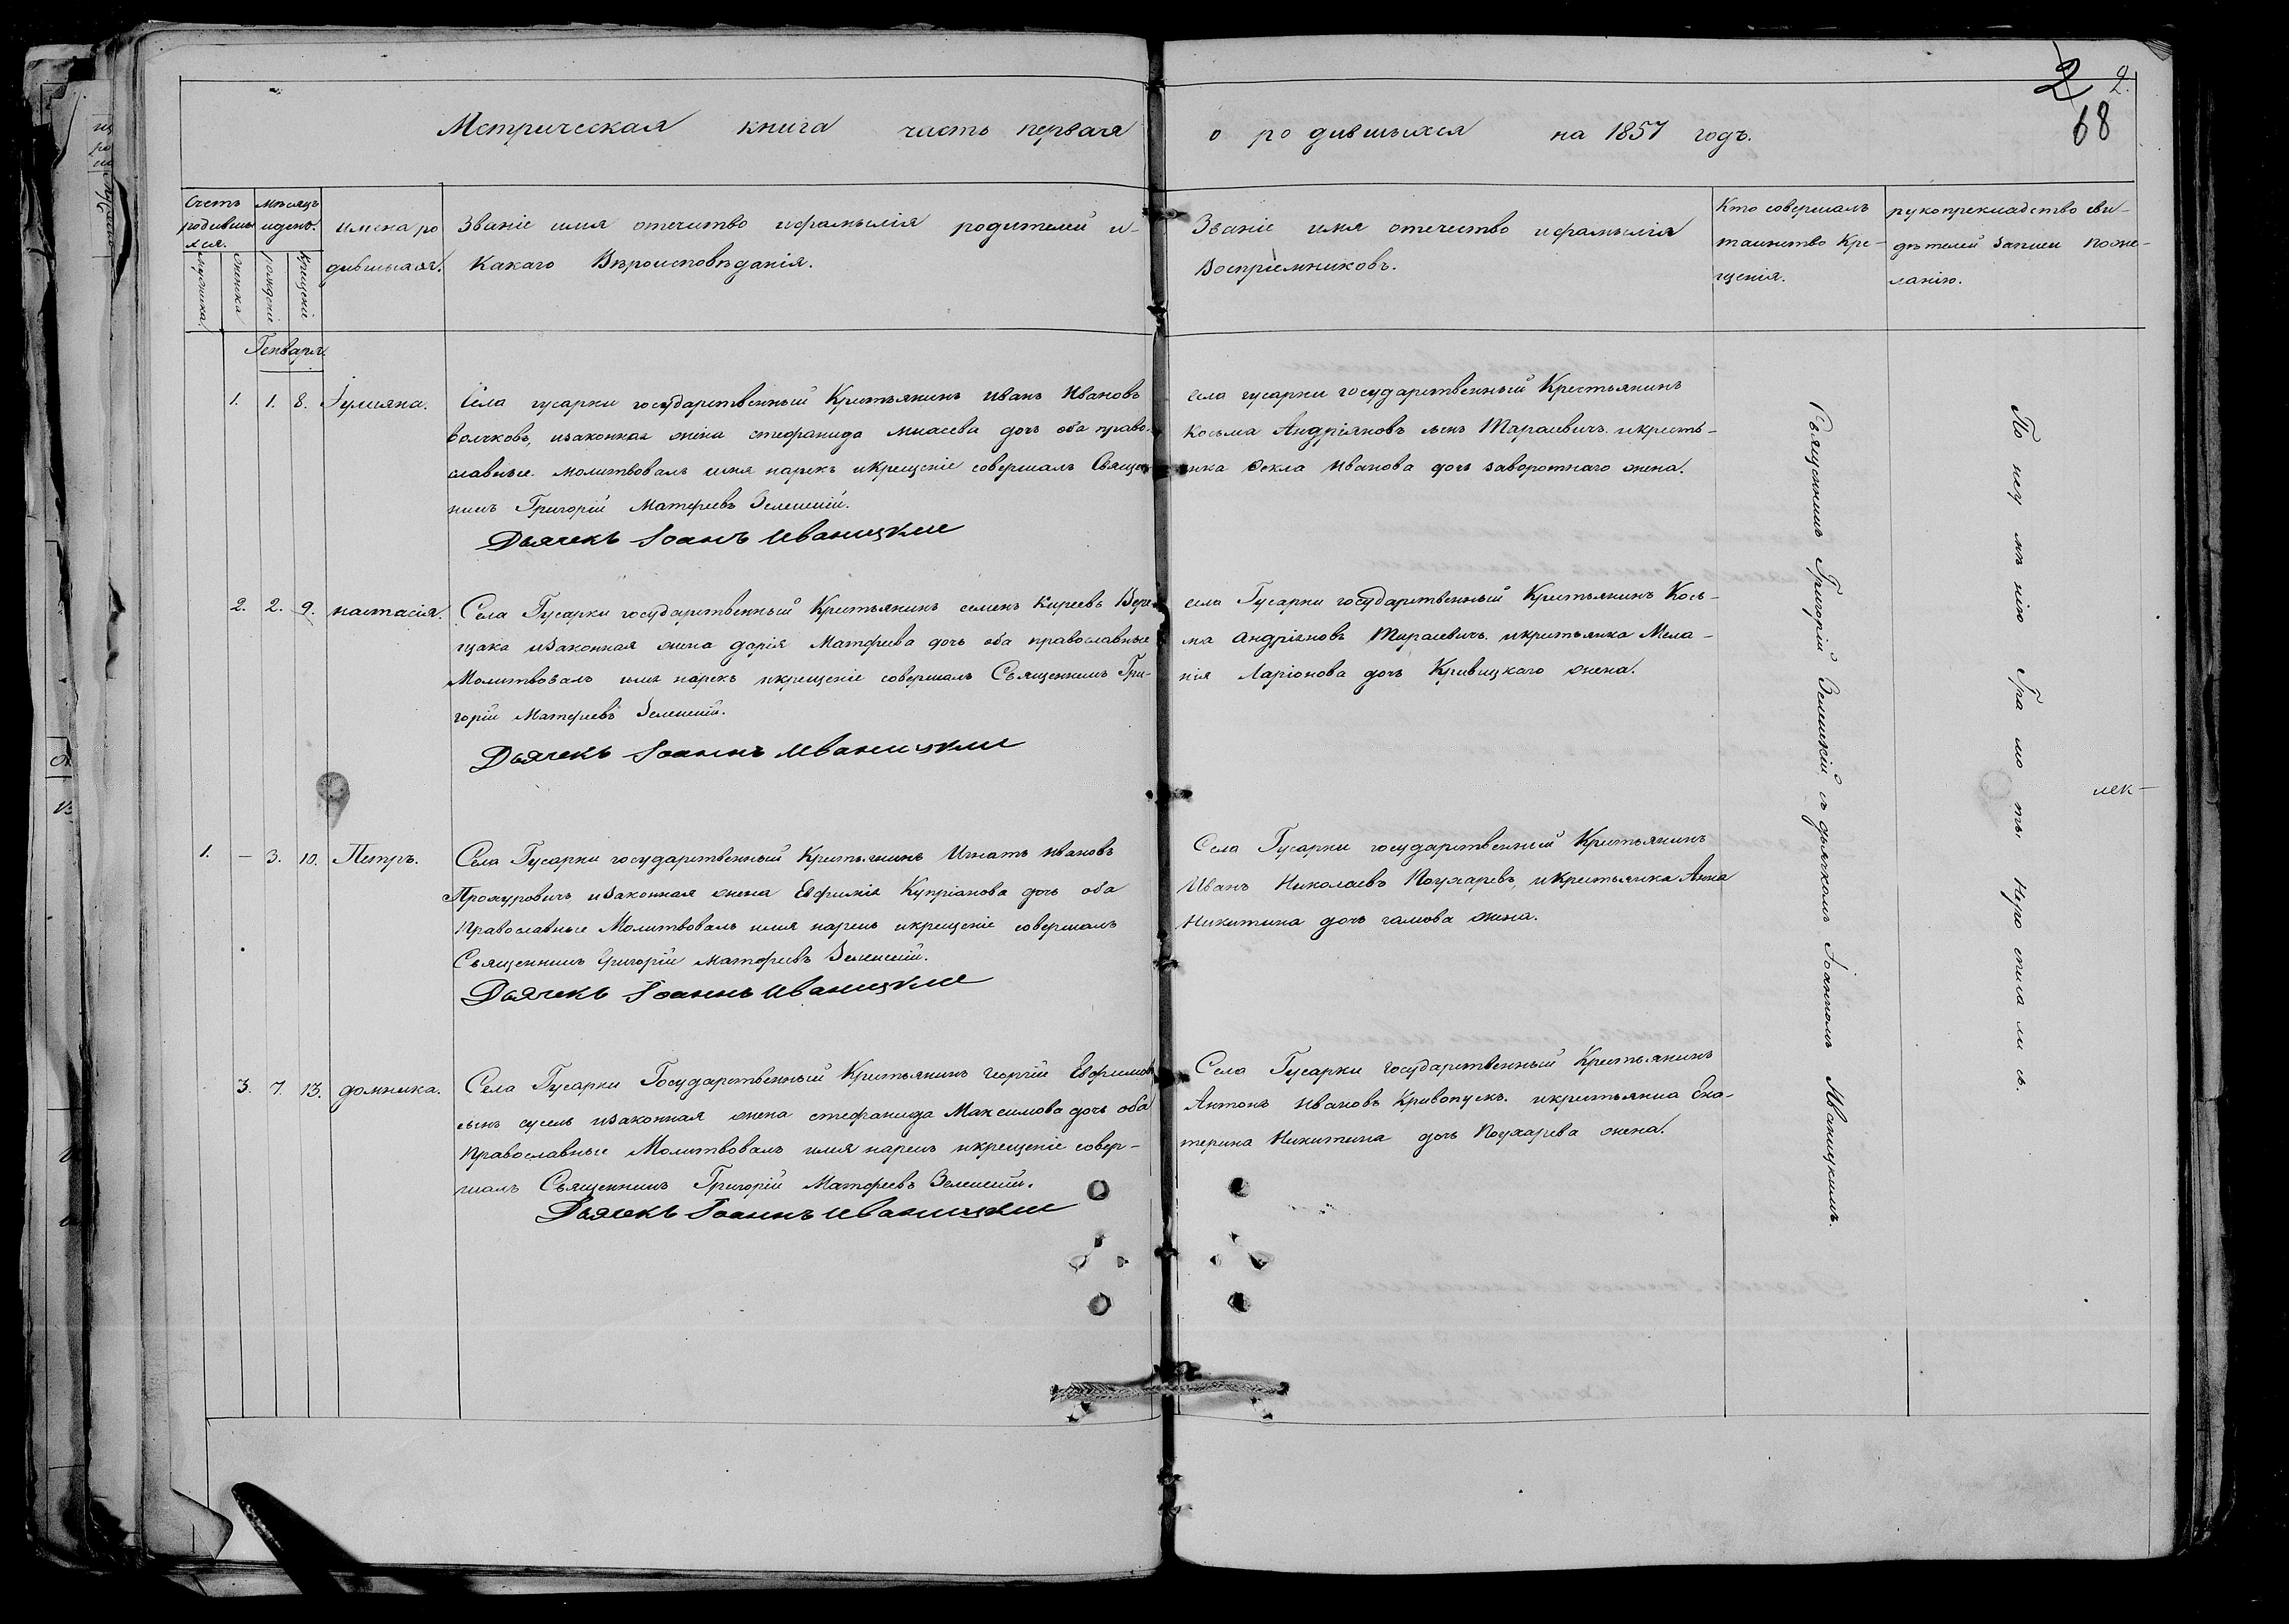 2 2.
68
Метрическая книга часть первая о родившихся на 1857 годъ.
Счетъ родившихся.
мужеска.
женска
Мѣсяцъ и день.
рожденіе
крещеніе
имена родившихся.
Званіе имя отечество ифамилія родителей и-
Какаго Вѣроисповѣданія.
Званіе имя отечество ифамилія
Воспріемниковъ.
Кто совершалъ
таинство Кре-
щенія.
рукоприкладство сви-
дѣтелей записи поже-
ланію.
Генваря
1. 1. 8. Іулияна.
Села гусарки государственный Крестьянинъ Иванъ Ивановъ
Волчковъ, изаконная жена стефанида дочь оба право-
славные молитвовалъ имя нарекъ икрещеніе совершалъ Священ
никъ Григорій Матфеевъ Зеленскій.
Дьячекъ Іоанъ Иваницкии
села гусарки государственный Крестьянинъ
Косьма Андріяновъ сынъ Тарасевичъ. икресть-
янка Ѳекла Иванова дочь заворотнаго жена.
2. 2. 9. настасія.
Села Гусарки государственный Крестьянинъ семенъ Киреевъ Вере
щака изаконная жена дарія Матфеева дочь оба православные
Молитвовалъ имя нарекъ икрещеніе совершалъ Священникъ Гри-
горій Матфеевъ Зеленскій.
Дьячекъ Іоаннъ Иваницкии
села Гусарки государственный Крестьянинъ Кось-
ма андріяновъ Тарасевичъ. икрестьянка Мела-
нія Ларіонова дочь Кривицкаго жена.
1. — 3. 10. Петръ.
Села Гусарки государственный Крестьянинъ Игнатъ Ивановъ
изаконная жена Евфимія Купріанова дочь оба
Православные Молитвовалъ имя нарекъ икрещеніе совершалъ
Священникъ Григорій Матфеевъ Зеленскій.
Дьячекъ Іоаннъ Иваницкии
Села Гусарки государственный Крестьянинъ
Иванъ Николаевъ Поужаревъ, икрестьянка Анна
Никитина дочь жена.
3. 7. 13. домника.
Села Гусарки Государственный Крестьянинъ георгій Евфимовъ
сынъ сусель изаконная жена стефанида Максимова дочь оба
Православные Молитвовалъ имя нарекъ икрещеніе совер-
шалъ Священникъ Григорій Матфеевъ Зеленскій.
Дьячекъ Іоаннъ Иваницкии
Села Гусарки государственный Крестьянинъ
Антонъ Ивановъ Кривопускъ. икрестьянка Ека-
терина Никитина дочь Поужарева жена.
Священникъ Григорій Зеленскій, съ дьячкомъ Іоанномъ Иваницкимъ.
По неу мѣ нію Гра мо ты. Неро списа ли сь.
лек-